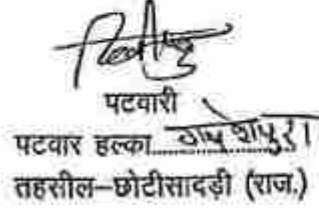 पटवारी
पटवार हल्का
तहसील–छोटीसादड़ी (राज.)